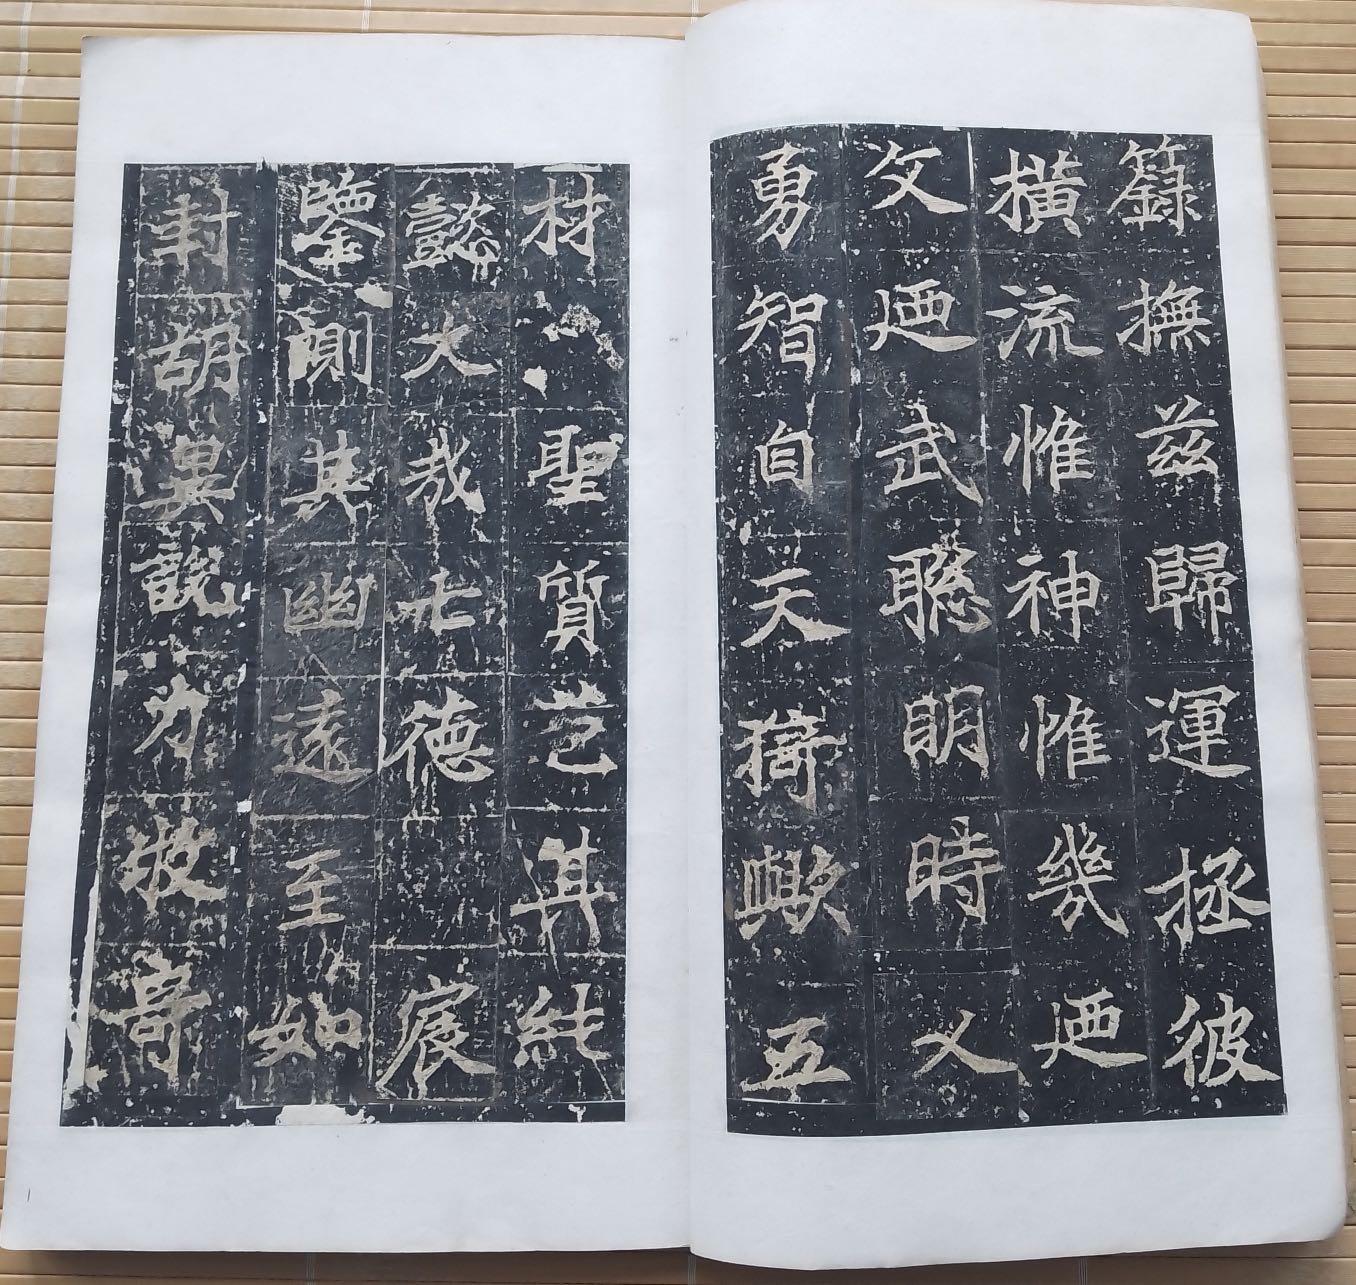 籙撫茲歸運拯彼
橫流惟神惟幾廼
文廼武聰明時乂
勇智自天猗歟五
材聖質芒其純
懿大哉七德宸
鑒測其幽遠至如
封胡異説力牧奇